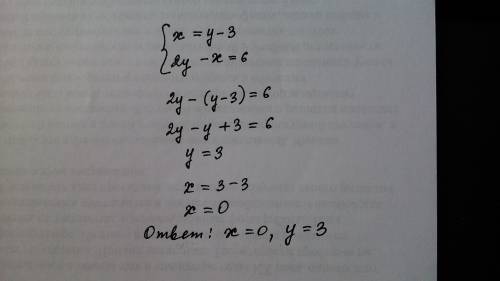 { x = y - 3
2y - x = 6
2y - (y - 3) = 6
2y - y + 3 = 6
y = 3
x = 3 - 3
x = 0
Ответ: x = 0, y = 3